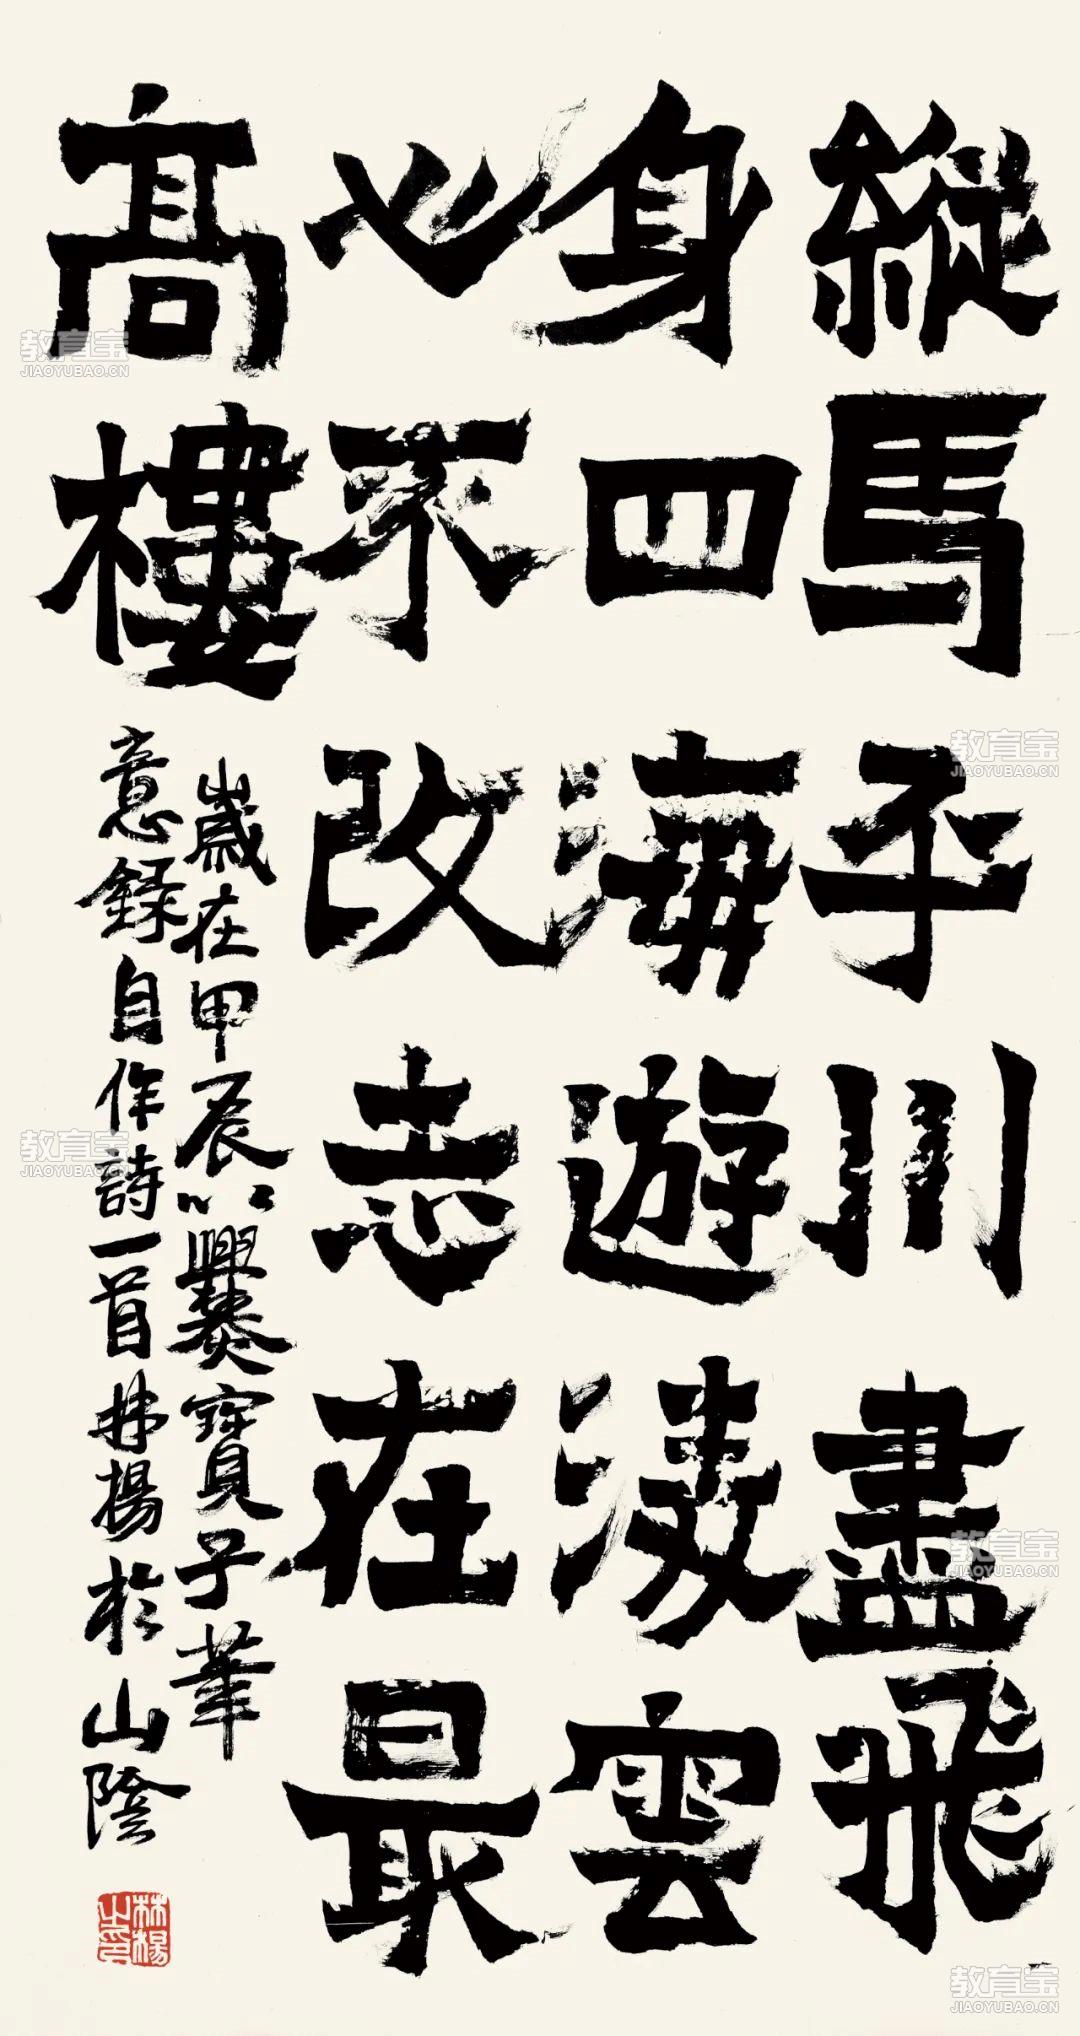 縱馬平川盡飛
身四海遊凌雲
心不改志在最
高樓
歲在甲辰以爨寶子筆
意錄自作詩一首林楊於山陰
林楊之印
教育宝
JIAOYUBAO.CN
教育宝
JIAOYUBAO.CN
教育宝
JIAOYUBAO.CN
教育宝
JIAOYUBAO.CN
教育宝
JIAOYUBAO.CN